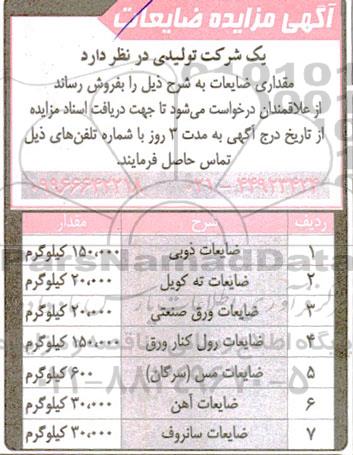 آگهی مزایده ضایعات
یک شرکت تولیدی در نظر دارد
مقداری ضایعات به شرح ذیل را بفروش رساند
از علاقمندان درخواست می‌شود تا جهت دریافت اسناد مزایده
از تاریخ درج آگهی به مدت ۳ روز با شماره تلفن‌های ذیل
تماس حاصل فرمایند.
ردیف شرح مقدار
۱ ضایعات ذوبی ۱۵۰،۰۰۰ کیلوگرم
۲ ضایعات ته کویل ۲۰،۰۰۰ کیلوگرم
۳ ضایعات ورق صنعتی ۲۰،۰۰۰ کیلوگرم
۴ ضایعات رول کنار ورق ۱۵۰،۰۰۰ کیلوگرم
۵ ضایعات مس (سرگان) ۶۰۰ کیلوگرم
۶ ضایعات آهن ۳۰،۰۰۰ کیلوگرم
۷ ضایعات سانروف ۳۰،۰۰۰ کیلوگرم